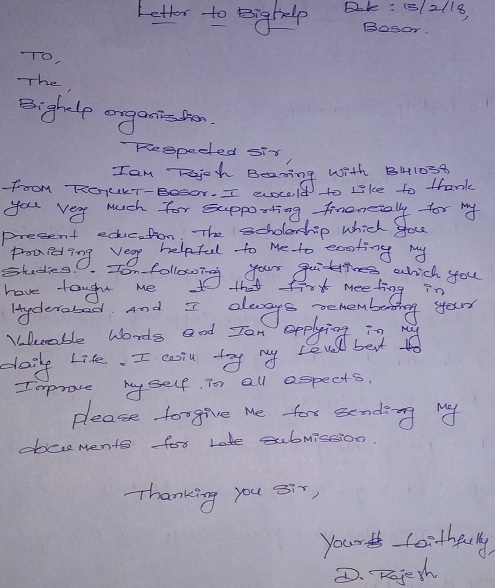 Letter to Bighelp Date : 15/2/18,
Basar.
To,
The,
Bighelp organisation.
Respected Sir,
Iam Rajesh Bearing with BH1038
from RGUKT-Basar. I would to Like to thank
you Very Much for supporting financially for My
present education, The scholarship which you
providing Very helpful to Me to my
studies. Iam following your guidelines which you
have taught Me that first Meeting in
Hyderabad. And I always remembering your
Valuable Words and Iam applying in My
daily Life. I will try My Level best to
Improve Myself in all aspects.
please forgive Me for sending My
documents for Late submission.
Thanking you Sir,
Yours faithfully,
D. Rajesh